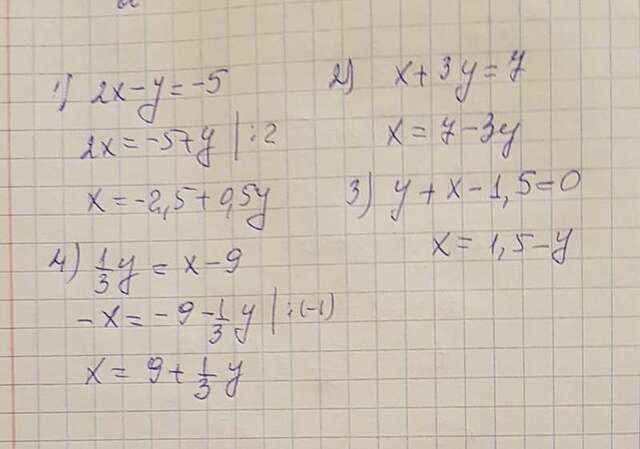 1) 2x-y=-5
2x=-5+y |:2
x=-2,5+0,5y
2) x+3y=7
x=7-3y
3) y+x-1,5=0
x=1,5-y
4) 1/3y=x-9
-x=-9-1/3y |:(-1)
x=9+1/3y